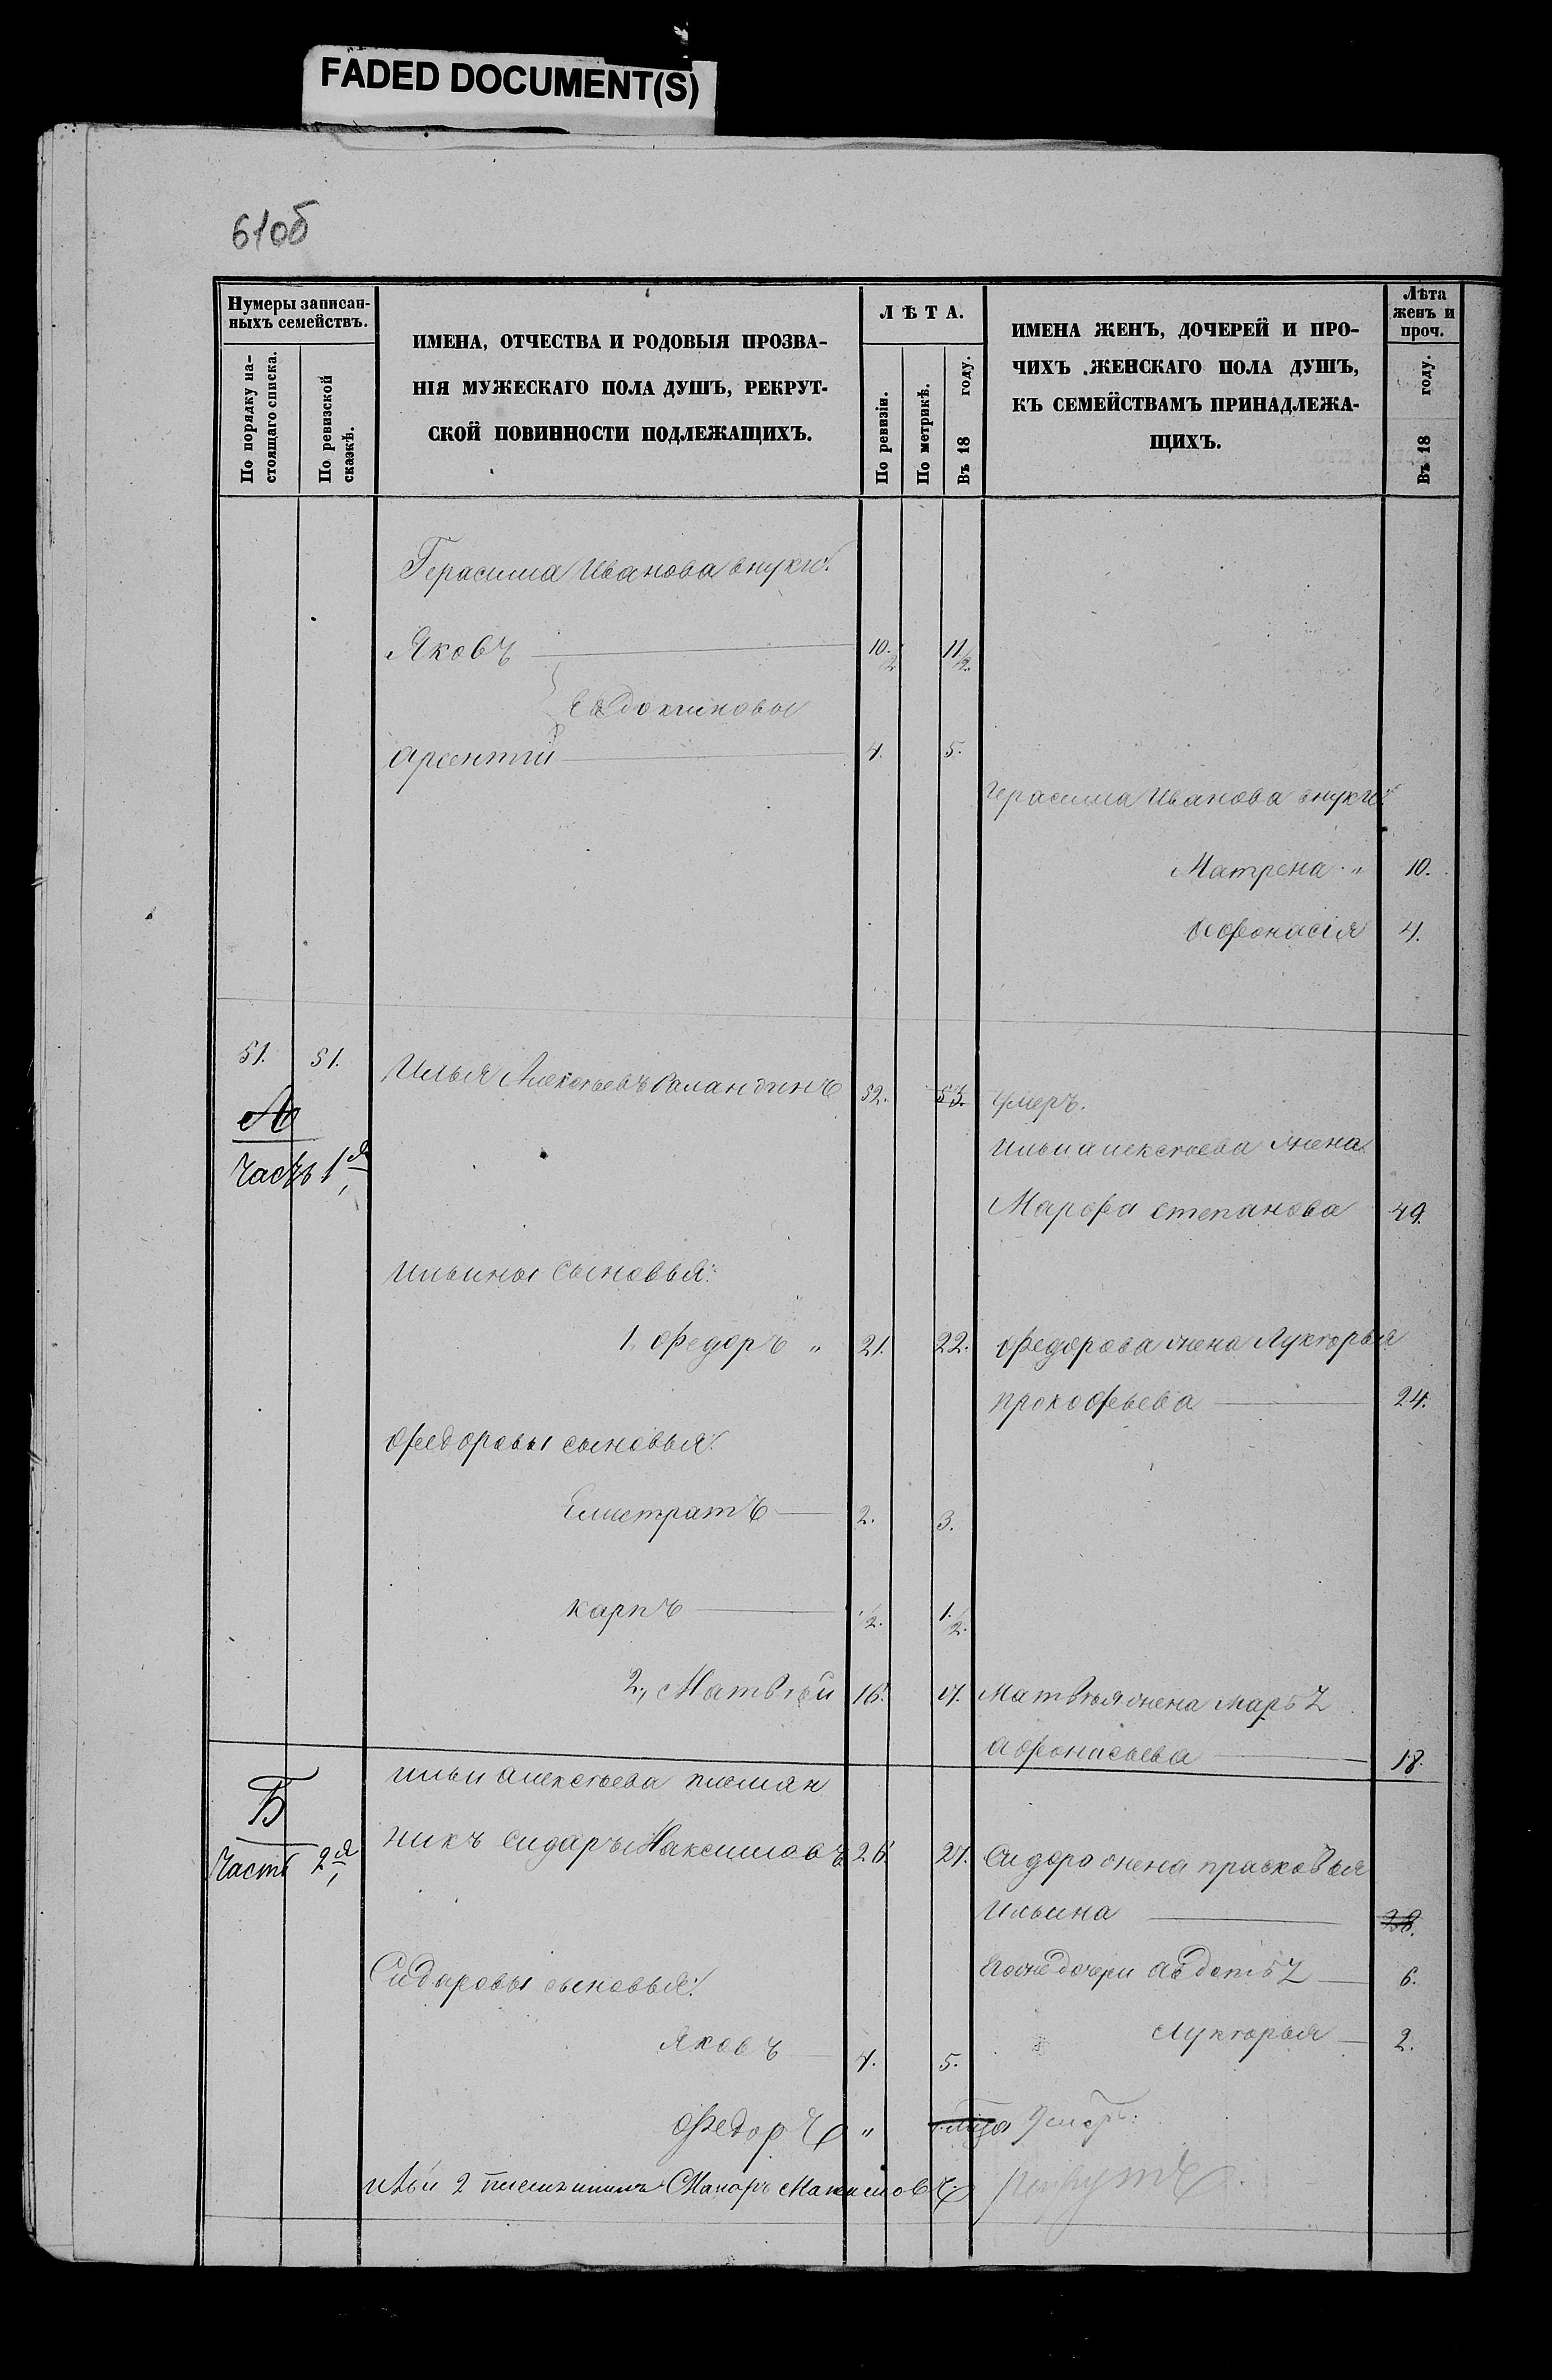 FADED DOCUMENT(S)
61об
Нумеры записан-
ныхъ семействъ.
По порядку на-
стоящаго списка.
По ревизской
сказкѣ.
ИМЕНА, ОТЧЕСТВА И РОДОВЫЯ ПРОЗВА-
НІЯ МУЖЕСКАГО ПОЛА ДУШЪ, РЕКРУТ-
СКОЙ ПОВИННОСТИ ПОДЛЕЖАЩИХЪ.
ЛѢТА.
По ревизіи.
По метрикѣ.
Въ 18 году.
ИМЕНА ЖЕНЪ, ДОЧЕРЕЙ И ПРО-
ЧИХЪ ЖЕНСКАГО ПОЛА ДУШЪ,
КЪ СЕМЕЙСТВАМЪ ПРИНАДЛЕЖА-
ЩИХЪ.
Лѣта
женъ и
проч.
Въ 18 году.
Герасима Иванова внуки:
Яковъ 10 1/2 11 1/2
Евдокимовы
Арсентій 4. 5.
Герасима Иванова внуки:
Матрена " 10.
Афонасія 4.
51. 51. Илья Алексѣевъ 52. 53. умеръ.
А
Часть 1я
Ильи Алексѣева жена
Марфа Степанова 49.
Ильины сыновья:
1, Федоръ " 21. 22. Федорова жена Лукѣрья
Прокофьева 24.
Федоровы сыновья:
Елистратъ 2. 3.
Карпъ 1/2. 1 1/2.
2, Матвѣй 16. 17. Матвѣя жена Марья
Афонасьева 18.
Б
Часть 2я
Ильи Алексѣева племян
никъ Сидаръ Максимовъ 26. 27. Сидора жена Прасковья
Ильина 28.
Сидаровы сыновья:
Егоже дочери Авдотья 6.
Лукѣрья 2.
Яковъ 4. 5.
Федоръ " Умеръ:
Ильи 2 племянникъ Макаръ Максимовъ рекрутъ.